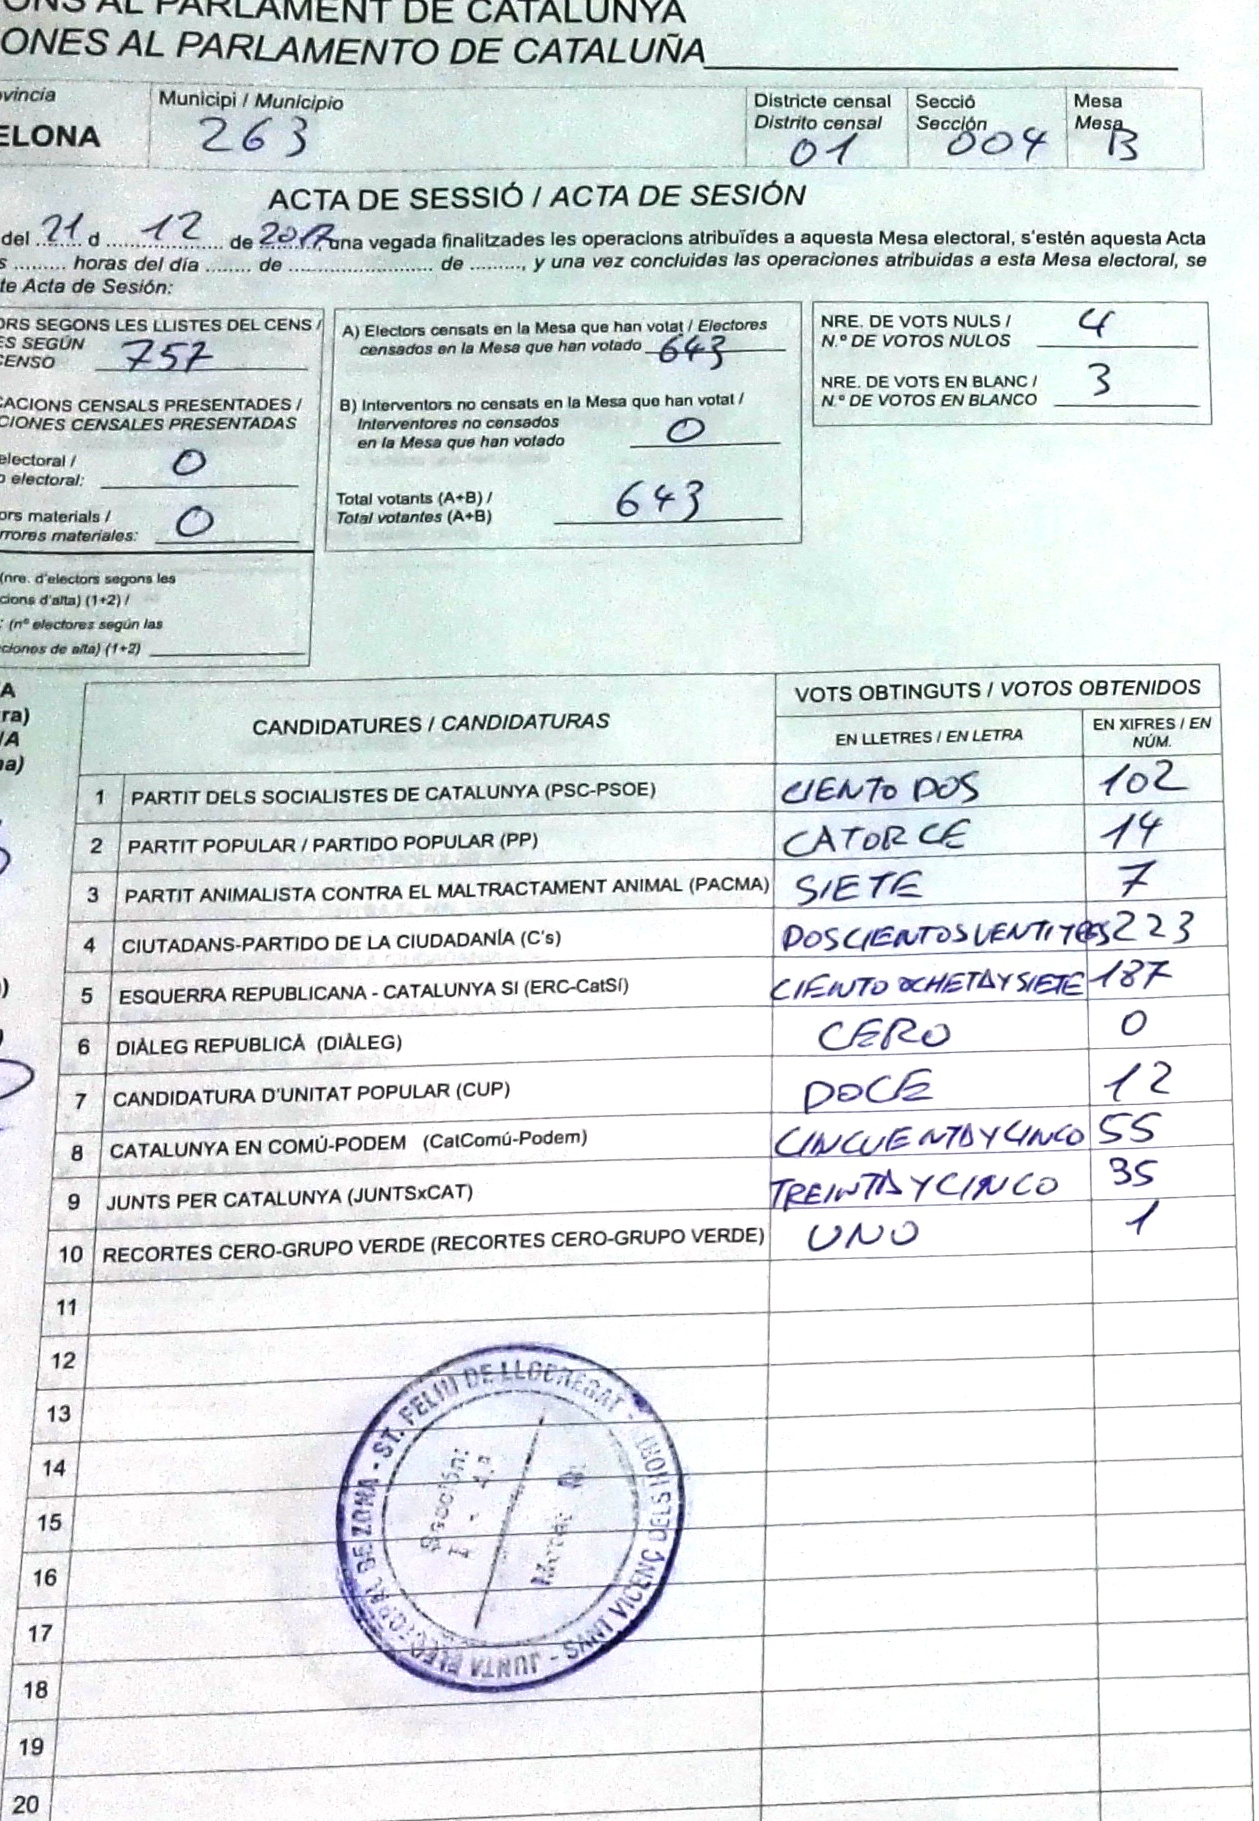 ONS AL PARLAMENT DE CATALUNYA
ONES AL PARLAMENTO DE CATALUÑA
vincia
ELONA
Municipi / Municipio
263
Districte censal
Distrito censal
01
Secció
Sección
004
Mesa
Mesa
B
ACTA DE SESSIÓ / ACTA DE SESIÓN
del 21 d 12 de 2017, una vegada finalitzades les operacions atribuïdes a aquesta Mesa electoral, s'estén aquesta Acta
s ......... horas del día ........ de ......................... de ........., y una vez concluidas las operaciones atribuidas a esta Mesa electoral, se
te Acta de Sesión:
ORS SEGONS LES LLISTES DEL CENS /
ES SEGÚN
CENSO 757
CACIONS CENSALS PRESENTADES /
CIONES CENSALES PRESENTADAS
electoral /
o electoral: 0
ors materials /
rrores materiales: 0
(nre. d'electors segons les
cions d'alta) (1+2) /
: (nº electores según las
ciones de alta) (1+2)
A) Electors censats en la Mesa que han votat / Electores
censados en la Mesa que han votado 643
B) Interventors no censats en la Mesa que han votat /
Interventores no censados
en la Mesa que han votado 0
Total votants (A+B) /
Total votantes (A+B) 643
NRE. DE VOTS NULS /
N.º DE VOTOS NULOS 4
NRE. DE VOTS EN BLANC /
N.º DE VOTOS EN BLANCO 3
A
ra)
/A
na)
CANDIDATURES / CANDIDATURAS
VOTS OBTINGUTS / VOTOS OBTENIDOS
EN LLETRES / EN LETRA
EN XIFRES / EN
NÚM.
1 PARTIT DELS SOCIALISTES DE CATALUNYA (PSC-PSOE) CIENTO DOS 102
2 PARTIT POPULAR / PARTIDO POPULAR (PP) CATORCE 14
3 PARTIT ANIMALISTA CONTRA EL MALTRACTAMENT ANIMAL (PACMA) SIETE 7
4 CIUTADANS-PARTIDO DE LA CIUDADANÍA (C's) DOSCIENTOSVENTITRES 223
5 ESQUERRA REPUBLICANA - CATALUNYA SI (ERC-CatSí) CIENTO OCHETAYSIETE 187
6 DIÀLEG REPUBLICÀ (DIÀLEG) CERO 0
7 CANDIDATURA D'UNITAT POPULAR (CUP) DOCE 12
8 CATALUNYA EN COMÚ-PODEM (CatComú-Podem) CINCUENTAYCINCO 55
9 JUNTS PER CATALUNYA (JUNTSxCAT) TREINTAYCINCO 35
10 RECORTES CERO-GRUPO VERDE (RECORTES CERO-GRUPO VERDE) UNO 1
11
12
13
14
15
16
17
18
19
20
JUNTA ELECTORAL DE ZONA - ST. FELIU DE LLOBREGAT - SANT VICENÇ DELS HORTS
Sección:
Mesa: B